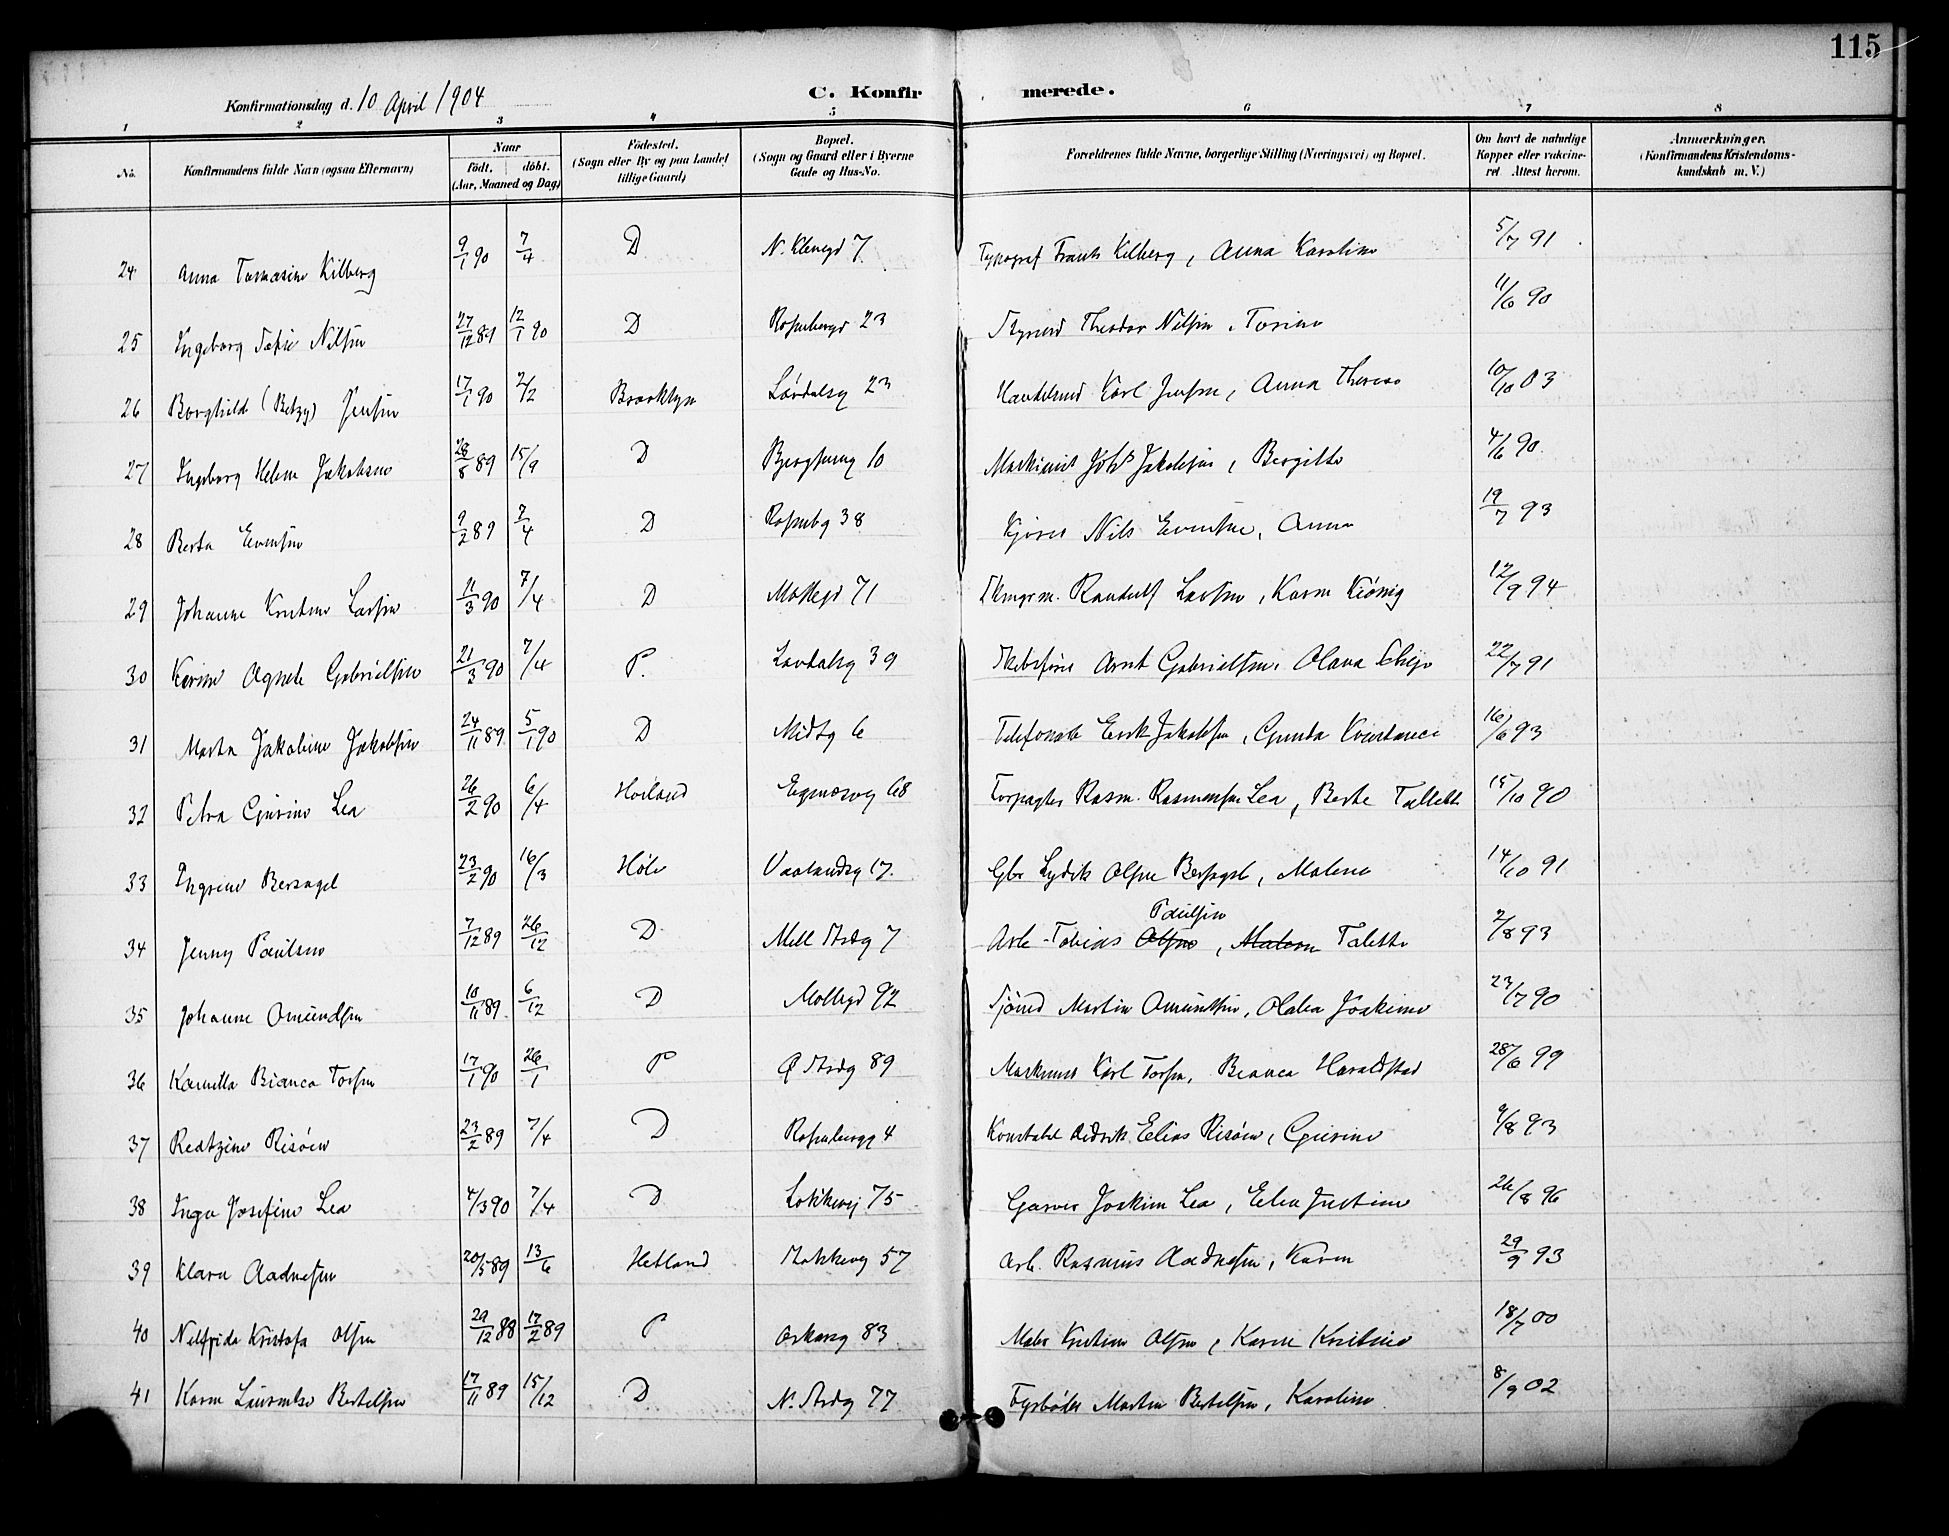 115
Konfirmationsdag d. 10 April 1904 C. Konfirmerede.
1 2 3 4 5 6 7 8
No. Konfirmandens fulde Navn (ogsaa Efternavn) Naar födt. döbt. (Aar, Maaned og Dag) Födested. (Sogn eller By og paa Landet tillige Gaard) Bopæl. (Sogn og Gaard eller i Byerne Gade og Hus-No. Forældrenes fulde Navne, borgerlige Stilling (Næringsvei) og Bopæl. Om havt de naturlige Kopper eller vakcineret Attest herom. Anmærkninger. (Konfirmandens Kristendomskundskab m. V.)
24 Anna Tomasine Kilberg 9/1 90 7/4 D 7 Typograf Frants Kilberg, Anna Karoline 5/7 91
25 Ingeborg Sofie Nilsen 27/12 89 12/1 90 D Rosenbergd 23 Theodor Nilsen, Torine 11/6 90
26 Borghild (Betzy) Jensen 17/1 90 2/2 Brooklyn Løvdalsg 23 Karl Jensen, Anna Therese 10/10 03
27 Ingeborg Helene Jakobsen 28/8 89 15/9 D 10 Maskinist Johs Jakobsen, Bergitte 4/6 90
28 Berta Evensen 9/2 89 7/4 D Rosenbg 38 Nils Evensen, Anna 19/7 93
29 Johanne Kristine Larsen 11/3 90 7/4 D Møllegd 71 Randulf Larsen, Karen 12/9 94
30 Karine Agnete Gabrielsen 21/3 90 7/4 P. Løvdalsg 39 Arnt Gabrielsen, Olava 22/7 91
31 Marta Jakobine Jakobsen 24/11 89 5/1 90 D Midtg 6 Erik Jakobsen, Gunda Konstance 16/6 93
32 Petra Gurine Lea 26/2 90 6/4 Høiland 68 Forpagter Rasm. Rasmussen Lea, Berte Tallette 15/10 90
33 Ingrine Bersagel 23/2 90 16/3 Høle Vaalandsg 17. Gbr Lydik Olsen Bersagel, Malene 14/10 91
34 Jenny Paulsen 7/12 89 26/12 D Mell Strdg 7 Arb. Tobias Olsen Paulsen, Malene Talette 2/8 93
35 Johanne Omundsen 10/11 89 6/12 D Møllegd 92 Sjømd Martin Omundsen, Olalea Joakime 23/7 90
36 Kamilla Bianca Torsen 17/1 90 26/1 P Ø Strdg 89 Karl Torsen, Bianca Haraldstad 28/6 99
37 Risøen 23/2 89 7/4 D Rosenbergg 4 Konstabel Elias Risøen, Gurine 9/8 93
38 Inga Josefine Lea 4/3 90 7/4 D Løkkevej 75 Garver Joakim Lea, Justine 26/8 96
39 Klara Aadnesen 20/5 89 13/6 Hetland 57 Arb. Rasmus Aadnesen, Karen 29/9 93
40 Nilfrida Kristofa Olsen 29/12 88 17/2 89 P 83 Maler Kristian Olsen, Karen Kristine 18/7 00
41 Karen Bertelsen 17/11 89 15/12 D N. Strdg 77 Fyrbøder Martin Bertelsen, Karoline 8/9 02